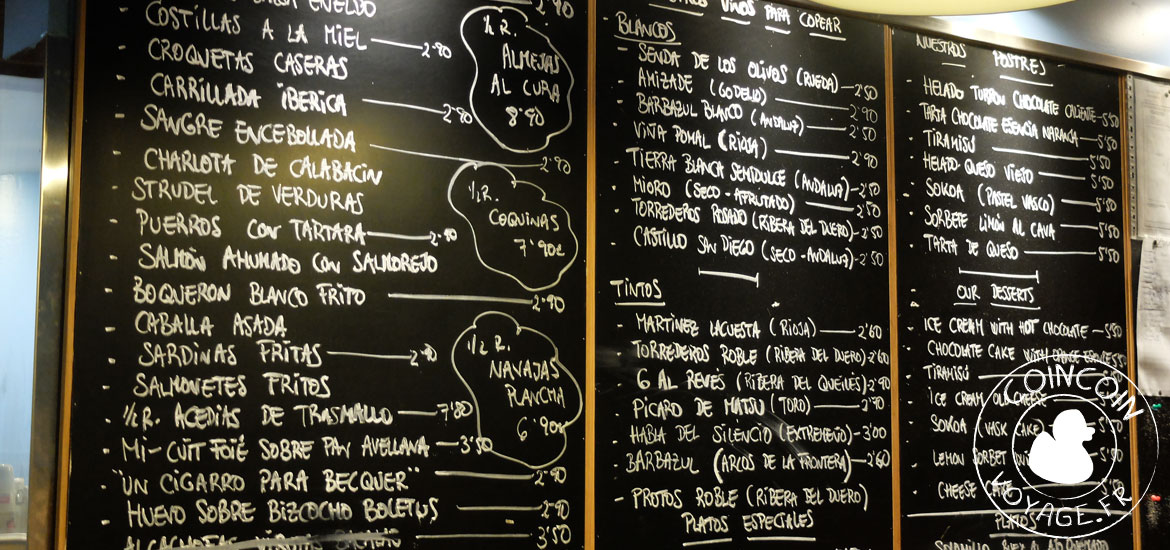 2'90
COSTILLAS A LA MIEL 2'90
CROQUETAS CASERAS
CARRILLADA IBERICA 2'80
SANGRE ENCEBOLLADA 2'90
CHARLOTA DE CALABACIN
STRUDEL DE VERDURAS
PUERROS CON TARTARA 2'90
SALMÓN AHUMADO CON SALMOREJO
BOQUERON BLANCO FRITO 2'90
CABALLA ASADA
SARDINAS FRITAS 2'90
SALMONETES FRITOS
1/2 R. ACEDIAS DE TRASMALLO 7'80
MI-CUIT FOIÉ SOBRE PAN AVELLANA 3'50
"UN CIGARRO PARA BECQUER" 2'90
HUEVO SOBRE BIZCOCHO BOLETUS 2'90
3'50
1/2 R.
ALMEJAS
AL CURA
8'90
1/2 R.
COQUINAS
7'90€
1/2 R.
NAVAJAS
PLANCHA
6'90€
VINOS PARA COPEAR
BLANCOS
- SENDA DE LOS OLIVOS (RUEDA) 2'50
- AMIZADE (GODELLO) 2'90
- BARBAZUL BLANCO (ANDALUZ) 2'50
- VIÑA POMAL (RIOJA) 2'90
- TIERRA BLANCA SEMIDULCE (ANDALUZ) 2'50
- MIORO (SECO-AFRUTADO) 2'50
- TORREDEROS ROSADO (RIBERA DEL DUERO) 2'50
- CASTILLO SAN DIEGO (SECO-ANDALUZ) 2'50
TINTOS
- MARTINEZ LACUESTA (RIOJA) 2'60
- TORREDEROS ROBLE (RIBERA DEL DUERO) 2'60
- 6 AL REVÉS (RIBERA DEL QUEILES) 2'90
- PICARO DE MATSU (TORO) 2'70
- HABLA DEL SILENCIO (EXTREMEÑO) 3'00
- BARBAZUL (ARCOS DE LA FRONTERA) 2'60
- PROTOS ROBLE (RIBERA DEL DUERO)
PLATOS ESPECIALES
NUESTROS POSTRES
- HELADO TURRÓN CHOCOLATE CALIENTE 5'50
- TARTA CHOCOLATE ESENCIA NARANJA 5'50
- TIRAMISÚ 5'50
- HELADO QUESO VIEJO 5'50
- SOKOA (PASTEL VASCO) 5'50
- SORBETE LIMÓN AL CAVA 5'50
- TARTA DE QUESO 5'50
OUR DESSERTS
- ICE CREAM WITH HOT CHOCOLATE 5'50
- CHOCOLATE CAKE WITH
- TIRAMISÚ
- ICE CREAM OLD CHEESE
- SOKOA (VASK CAKE) 5'50
- LEMON SORBET 5'50
- CHEESE CAKE 5'50
PLATOS
COINCOIN
VOYAGE.FR